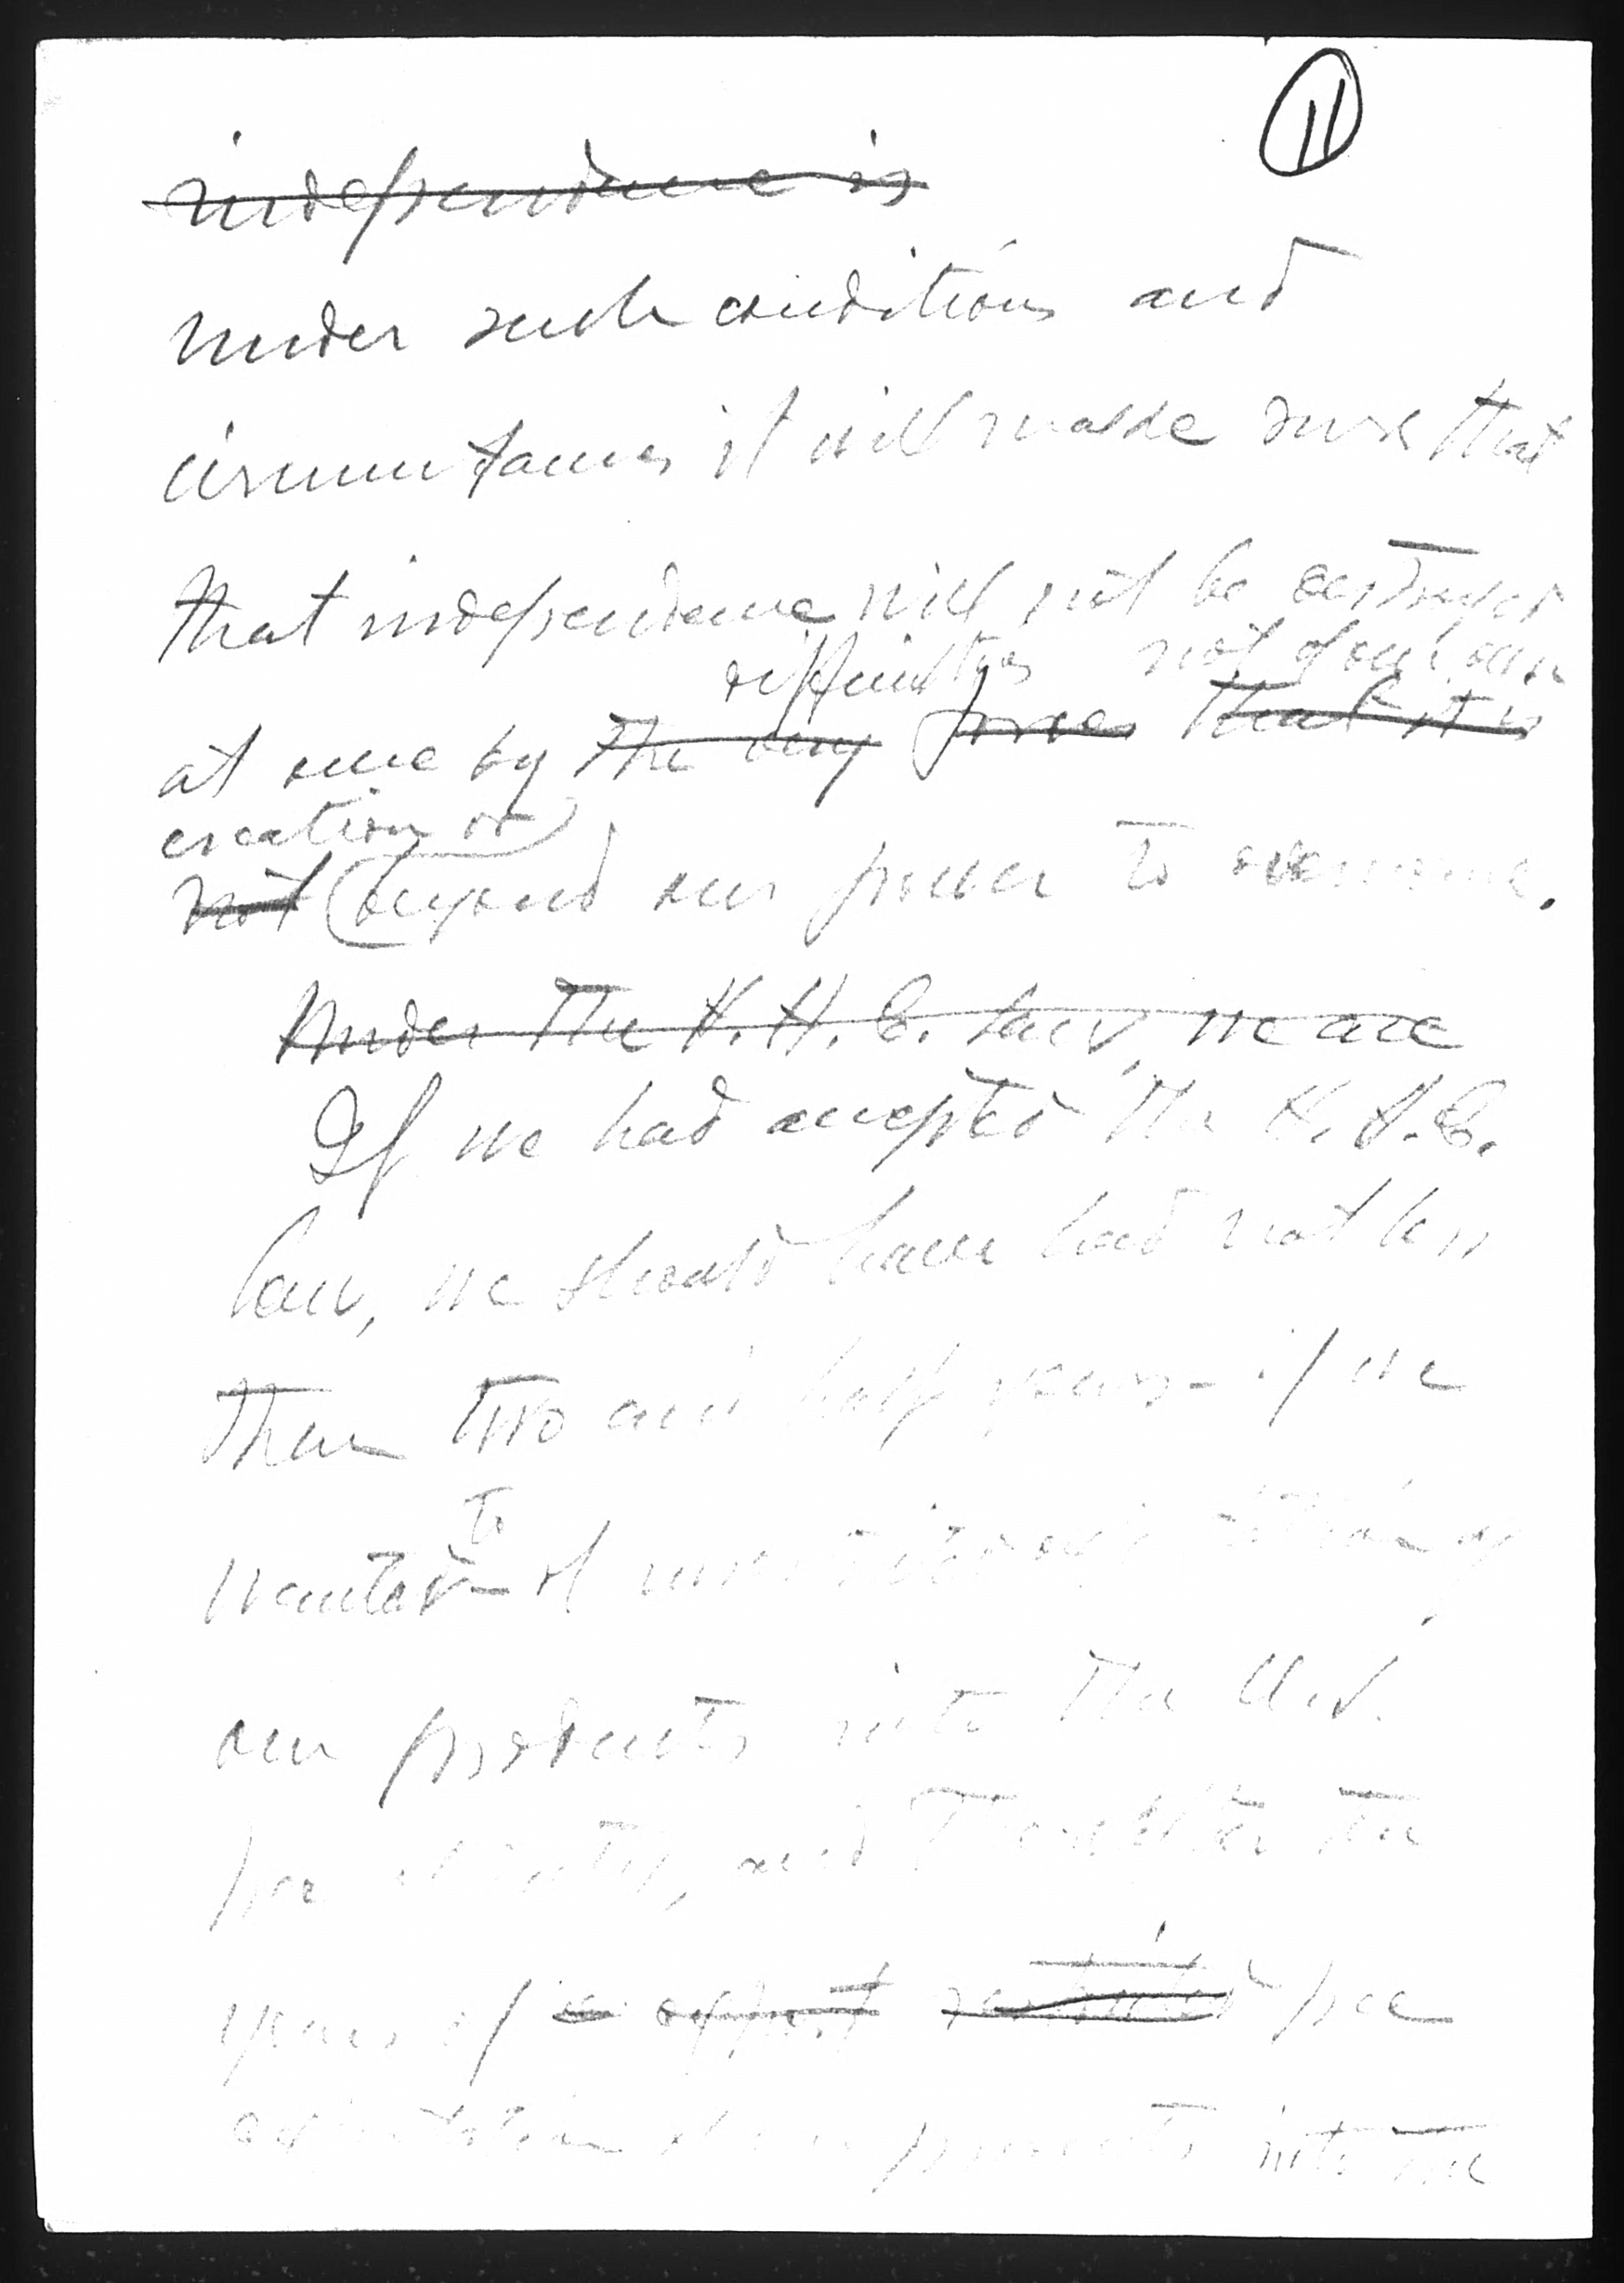 11
independence is
under such conditions and
circumstances it will make sure that
that independence will not be destroyed
difficulties not of our own
at once by the very forces that it is
creation or
not beyond our power to overcome.
Under the H. H. C. law, we are
If we had accepted the H. H. C.
law, we should have had not less
than two and half years - if we
to
wanted of unrestricted of
our products into the U.S.
free and thereafter ten
years of export restricted free
of our products into the